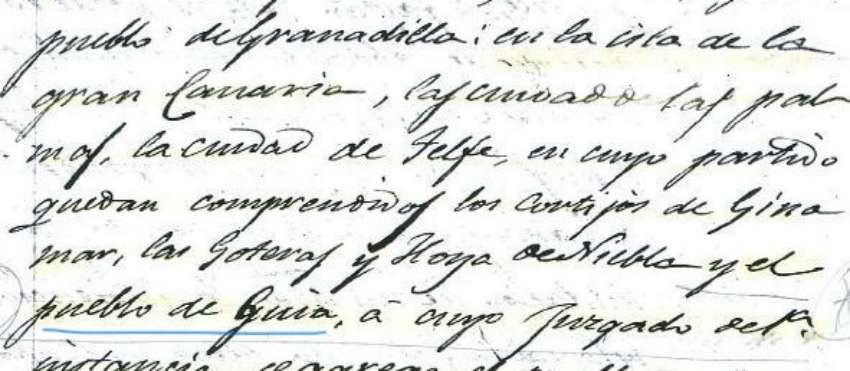 pueblo de Granadilla: en la isla de la
gran Canaria, las ciudad de las pal
mas, la ciudad de Telde, en cuyo partido
quedan comprendidos los Cortijos de Gina
mar, las Goteras y Hoya de Niebla y el
pueblo de Guia, á cuyo Juzgado de 1ª.
instancia se agrega el